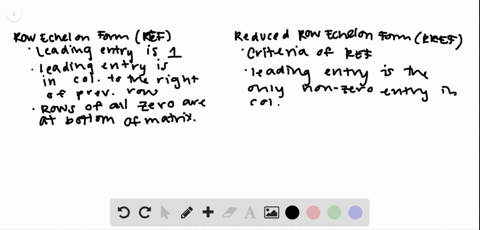 Row Echelon Form (REF)
• Leading entry is 1
• Leading entry is
in col. to the right
of prev. row
• Rows of all zero are
at bottom of matrix.
Reduced Row Echelon Form (RREF)
• Criteria of REF
• leading entry is the
only non-zero entry in
col.
A